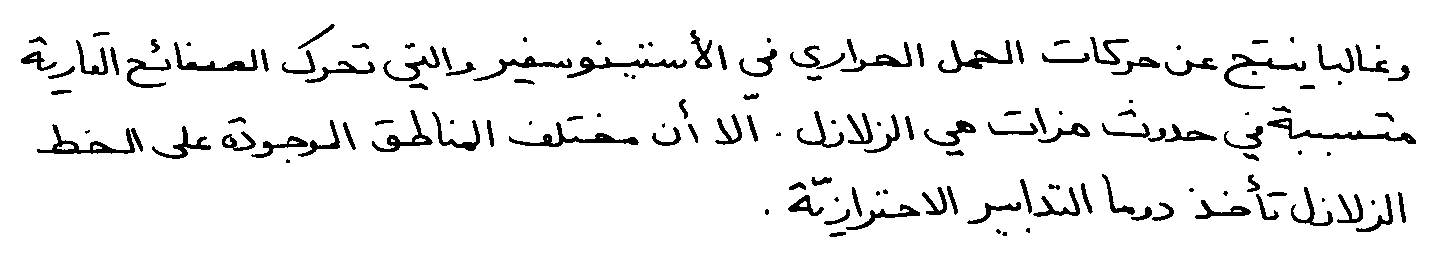 وغالبا ينتج عن حركات الحمل الحراري في الأستينوسفير والتي تحرك الصفائح القارية
متسببة في حدوث هزات هي الزلازل . ألّا أن مختلف المناطق الموجودة على الخط
الزلازل تأخذ دوما التدابير الاحترازيّة .